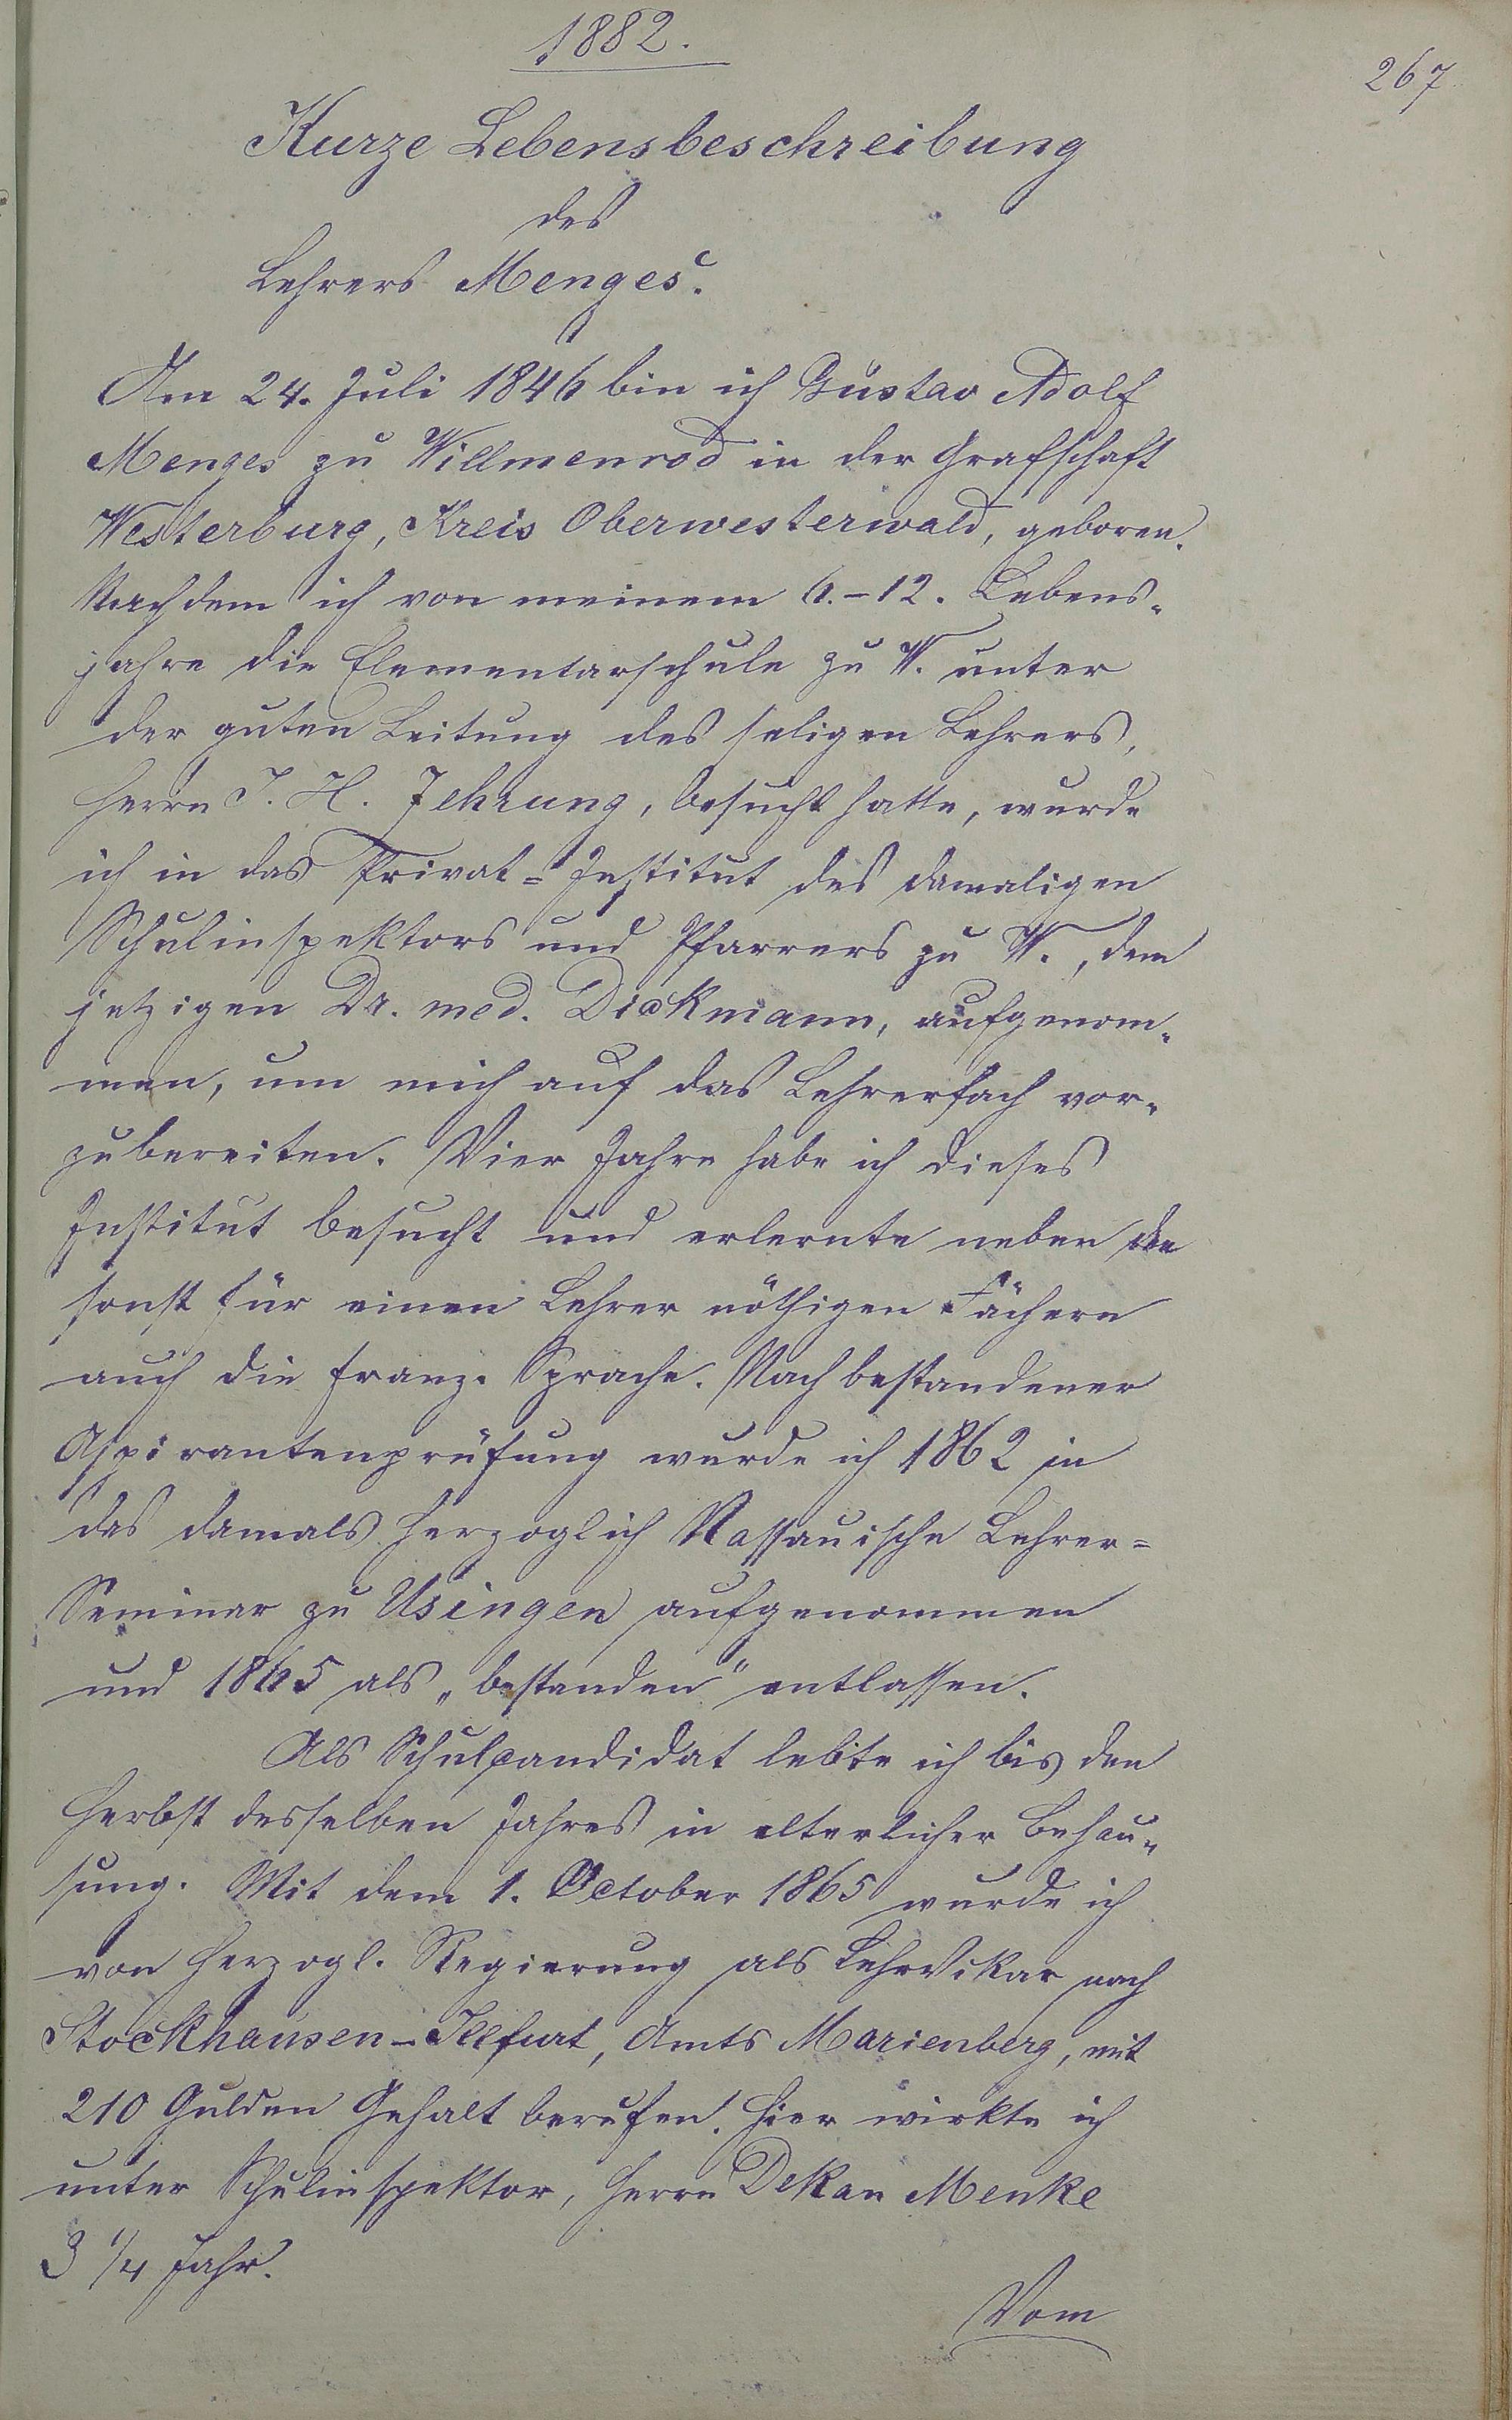 1882.
267
Kurze Lebensbeschreibung
des
Lehrers Menges.
Am 24. Juli 1846 bin ich Gustav Adolf
Menges zu Willmenrod in der Grafschaft
Westerburg, Kreis Oberwesterwald, geboren.
Nachdem ich von meinem 6.-12. Lebens-
jahre die Elementarschule zu W. unter
der guten Leitung des seligen Lehrers,
Herrn J. H. Jehrung, besucht hatte, wurde
ich in das Privat-Institut des damaligen
Schulinspektors und Pfarrers zu W., dem
jetzigen Dr. med. Dickmann, aufgenom-
men, um mich auf das Lehrerfach vor-
zubereiten. Vier Jahre habe ich dieses
Institut besucht und erlernte neben den
sonst für einen Lehrer nöthigen Fächern
auch die franz. Sprache. Nach bestandener
Aspirantenprüfung wurde ich 1862 in
das damals Herzoglich Nassauische Lehrer-
Seminar zu Usingen aufgenommen
und 1865 als „bestanden" entlassen.
Als Schulcandidat lebte ich bis den
Herbst desselben Jahres in elterlicher Behau-
sung. Mit dem 1. October 1865 wurde ich
von Herzogl. Regierung als Lehrvikar nach
Stockhausen-Illfurt, Amts Marienberg, mit
210 Gulden Gehalt berufen. Hier wirkte ich
unter Schulinspektor, Herrn Dekan Menke
3 1/4 Jahr.
Vom